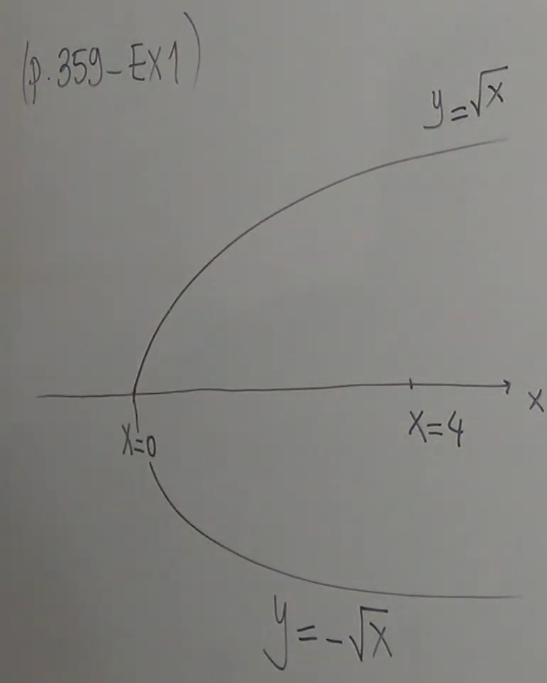 (p.359-EX1)
y=√x
x
x=4
x=0
y=-√x